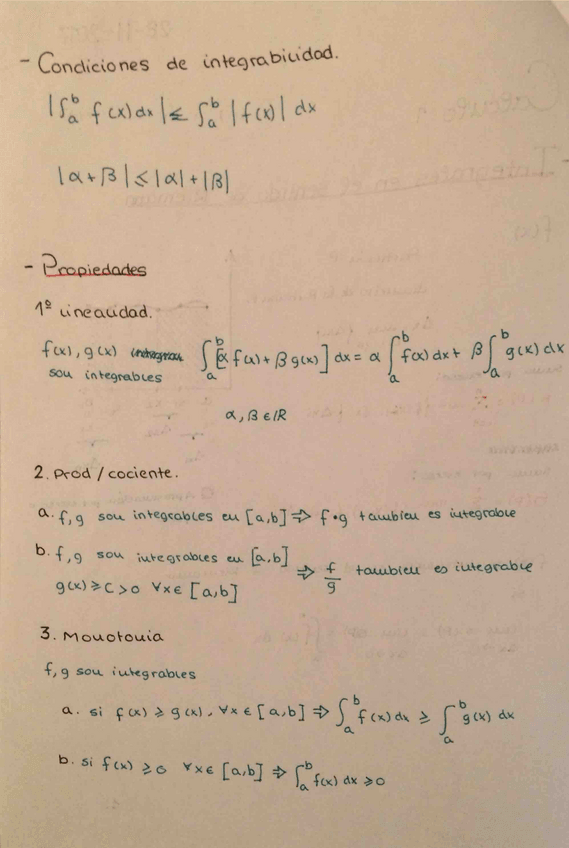 - Condiciones de integrabilidad.
|∫ₐᵇ f(x) dx| ≤ ∫ₐᵇ |f(x)| dx
|α + β| ≤ |α| + |β|
- Propiedades
1º Linealidad.
f(x), g(x) son integrables ∫ₐᵇ [α f(x) + β g(x)] dx = α ∫ₐᵇ f(x) dx + β ∫ₐᵇ g(x) dx
α, β ∈ ℝ
2. Prod / cociente.
a. f, g son integrables en [a,b] ⇒ f•g tambien es integrable
b. f, g son integrables en [a,b]
g(x) ≥ C > 0 ∀x ∈ [a,b] ⇒ f/g tambien es integrable
3. Monotonia
f, g son integrables
a. si f(x) ≥ g(x), ∀x ∈ [a,b] ⇒ ∫ₐᵇ f(x) dx ≥ ∫ₐᵇ g(x) dx
b. si f(x) ≥ 0 ∀x ∈ [a,b] ⇒ ∫ₐᵇ f(x) dx ≥ 0